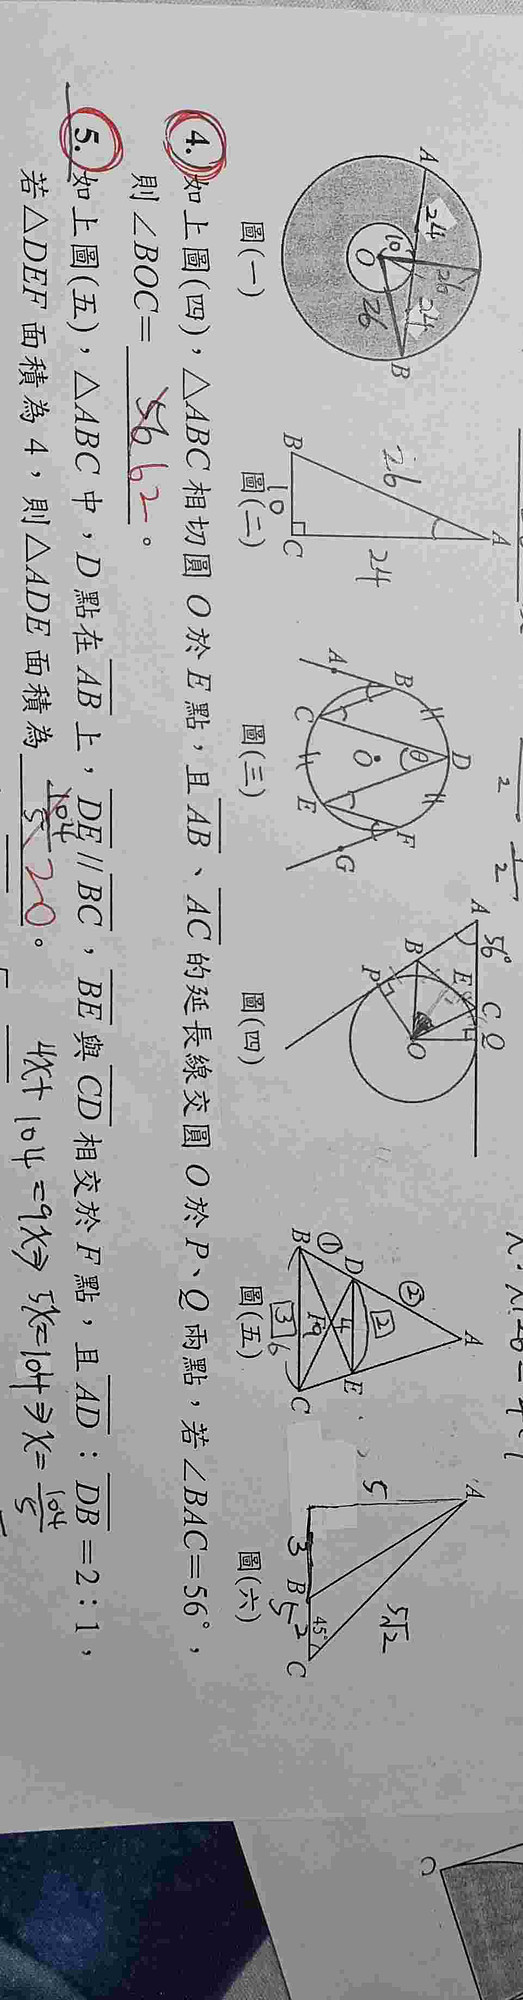 A
24
10
O
26
24
26
B
圖(一)
A
26
24
B
10
C
圖(二)
D
B
F
A
θ
O
C
E
G
圖(三)
A
56°
E
C
Q
B
P
O
圖(四)
A
②
D
2
E
①
4
F
9
B
3
6
C
圖(五)
A
5
5√2
3
B
2
45°
C
5
圖(六)
4. 如上圖(四),△ABC 相切圓 O 於 E 點,且 AB、AC 的延長線交圓 O 於 P、Q 兩點,若 ∠BAC=56°,
則 ∠BOC= 56 62 。
5. 如上圖(五),△ABC 中,D 點在 AB 上,DE // BC,BE 與 CD 相交於 F 點,且 AD:DB=2:1,
若 △DEF 面積為 4,則 △ADE 面積為 104/5 20 。
4x+104=9x⇒5x=104⇒x=104/5
C